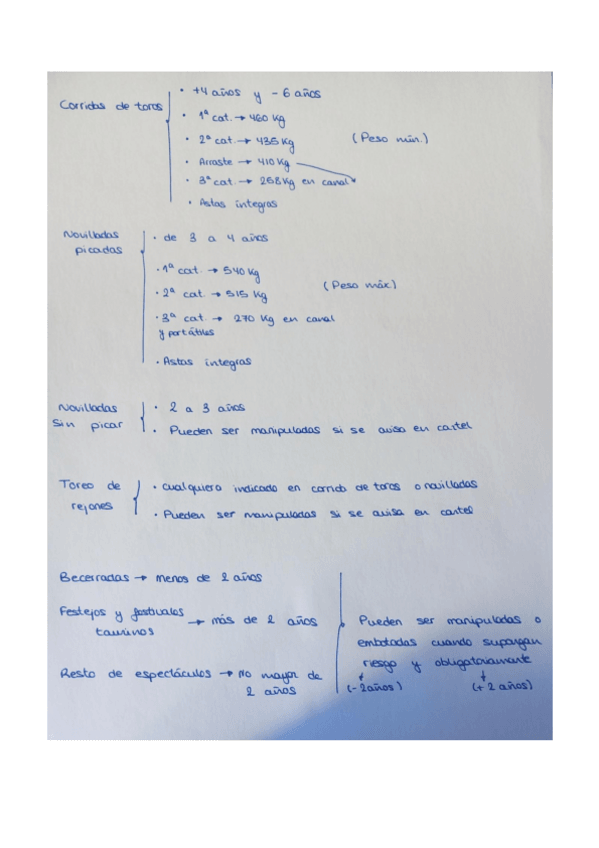 Corridas de toros
· +4 años y - 6 años
· 1ª cat. → 460 Kg
· 2ª cat. → 435 Kg
(Peso mín.)
· Arraste → 410 Kg
· 3ª cat. → 258 Kg en canal
· Astas íntegras
Novilladas
picadas
· de 3 a 4 años
· 1ª cat. → 540 Kg
· 2ª cat. → 515 Kg
(Peso máx.)
· 3ª cat. → 270 Kg en canal
y portátiles
· Astas íntegras
Novilladas
sin picar
· 2 a 3 años
· Pueden ser manipuladas si se avisa en cartel
Toreo de
rejones
· cualquiera indicado en corrida de toros o novilladas
· Pueden ser manipuladas si se avisa en cartel
Becerradas → menos de 2 años
Festejos y festivales
taurinos
→ más de 2 años
Resto de espectáculos → No mayor de
2 años
Pueden ser manipuladas o
embotadas cuando supongan
riesgo y obligatoriamente
(- 2 años)
(+ 2 años)